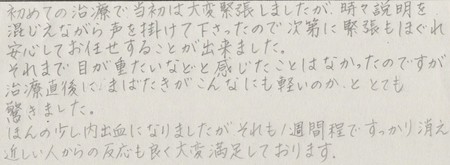 初めての治療で当初は大変緊張しましたが、時々説明を
混じえながら声を掛けて下さったので次第に緊張もほぐれ
安心してお任せすることが出来ました。
それまで目が重たいなどと感じたことはなかったのですが
治療直後に、まばたきがこんなにも軽いのか、ととても
驚きました。
ほんの少し内出血になりましたがそれも1週間程ですっかり消え
近しい人からの反応も良く大変満足しております.